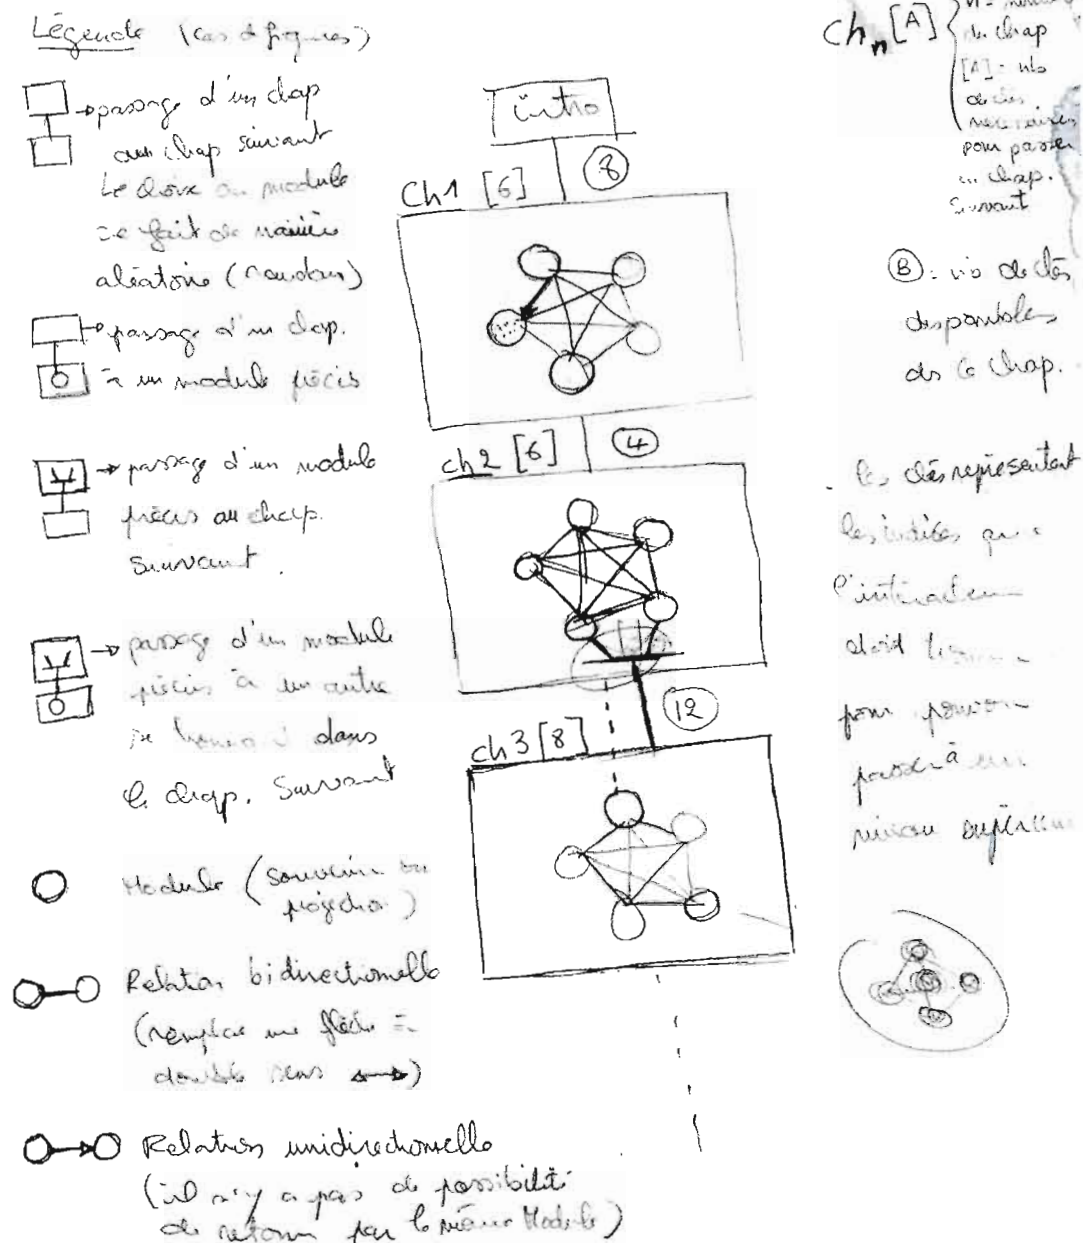 Légende (cas de figures)
→ passage d'un chap
au chap suivant
Le choix du module
se fait de manière
aléatoire (random)
→ passage d'un chap.
à un module précis
→ passage d'un module
précis au chap.
suivant.
→ passage d'un module
précis à un autre
se dans
le chap. suivant
Module (souvenir ou
projection)
Relation bidirectionnelle
(remplace une flèche à
double sens ↔)
Relation unidirectionnelle
(il n'y a pas de possibilité
de retour par le même Module)
intro
8
Ch1 [6]
4
ch2 [6]
12
ch3 [8]
Ch n [A]
n =
du chap
[A] = nb
de clés
nécessaires
pour passer
au chap.
suivant
B : nb de clés
disponibles
ds ce chap.
- les clés représentent
les indices que
l'interacteur
doit
pour pouvoir
passer à un
niveau supérieur